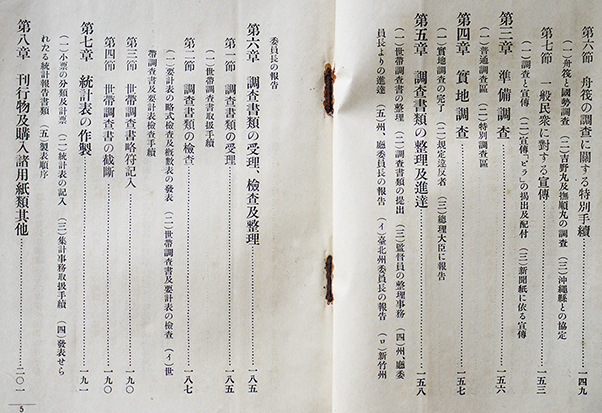 第六節 舟筏の調査に關する特別手續……一四九
（一）舟筏と國勢調査 （二）吉野丸及撫順丸の調査 （三）沖繩縣との協定
第七節 一般民衆に對する宣傳……一五三
（一）調査と宣傳 （二）宣傳「ビラ」の揭出及配付 （三）新聞紙に依る宣傳
第三章 準備調査……一五六
（一）普通調査區 （二）特別調査區
第四章 實地調査……一五七
（一）實地調査の完了 （二）規定違反者 （三）總理大臣に報告
第五章 調査書類の整理及進達……一五八
（一）世帶調査書の整理 （二）調査書類の提出 （三）監督員の整理事務 （四）州、廳委
員長よりの進達 （五）州、廳委員長の報告 （イ）臺北州委員長の報告 （ロ）新竹州
委員長の報告
第六章 調査書類の受理、檢查及整理……一八五
第一節 調査書類の受理……一八五
（一）世帶調査書取扱手續
第二節 調査書類の檢查……一八七
（一）要計表の略式檢查及概數表の發表 （二）世帶調査書及要計表の檢查 （イ）世
帶調査書及要計表檢查手續
第三節 世帶調査書略符記入……一九〇
第四節 世帶調査書の截斷……一九〇
第七章 統計表の作製……一九一
（一）小票の分類及計票 （二）統計表の記入 （三）集計事務取扱手續 （四）發表せら
れたる統計報告書類 （五）製表順序
第八章 刊行物及購入諸用紙類其他……二〇一
5